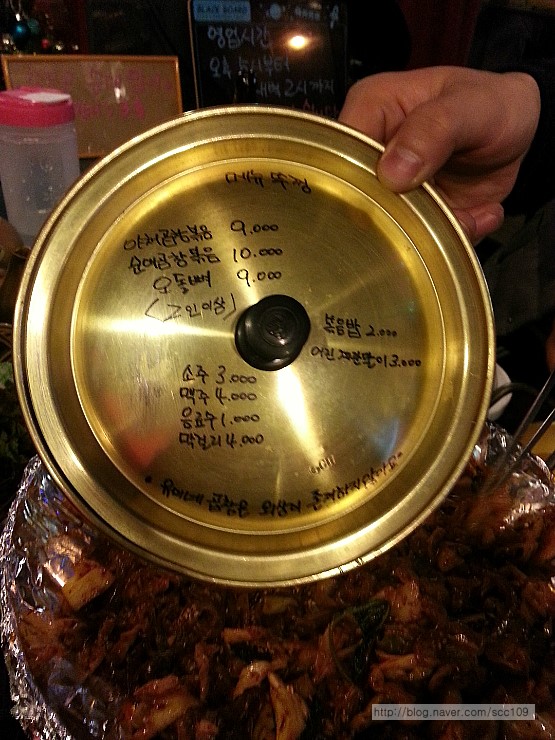 BLACK BOARD
영업시간
오후 부터
새벽 2시까지
메뉴 뚜껑
야채곱창볶음 9.000
순대곱창볶음 10.000
오돌뼈 9.000
(2인이상)
볶음밥 2.000
어린 계란말이 3.000
소주 3.000
맥주 4.000
음료수 1.000
막걸리 4.000
곱창은 외상이 존재하지않아요
http://blog.naver.com/scc109